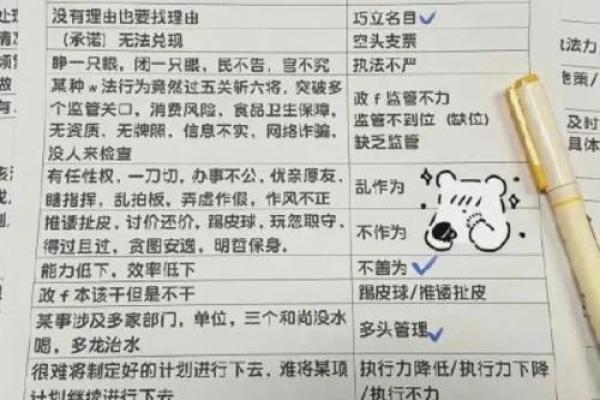 处理
没有理由也要找理由 巧立名目
（承诺）无法兑现 空头支票
睁一只眼，闭一只眼，民不告，官不究 执法不严
法力
某种w法行为竟然过五关斩六将，突破多
个监管关口，消费风险、食品卫生保障，
无资质、无牌照，信息不实、网络诈骗，
没人来检查
政f监管不力
监管不到位（缺位）
缺乏监管
施策/
及时
具体
有任性权，一刀切，办事不公，优亲厚友，
瞎指挥，乱拍板，弄虚作假，作风不正
乱作为
推诿扯皮，讨价还价，踢皮球，玩忽职守，
得过且过，贪图安逸，明哲保身。
不作为
能力低下，效率低下 不善为
政f本该干但是不干 踢皮球/推诿扯皮
某事涉及多家部门，单位，三个和尚没水
喝，多龙治水
多头管理
很难将制定好的计划进行下去，难将某项
计划继续进行下去
执行力降低/执行力下降
/执行不力